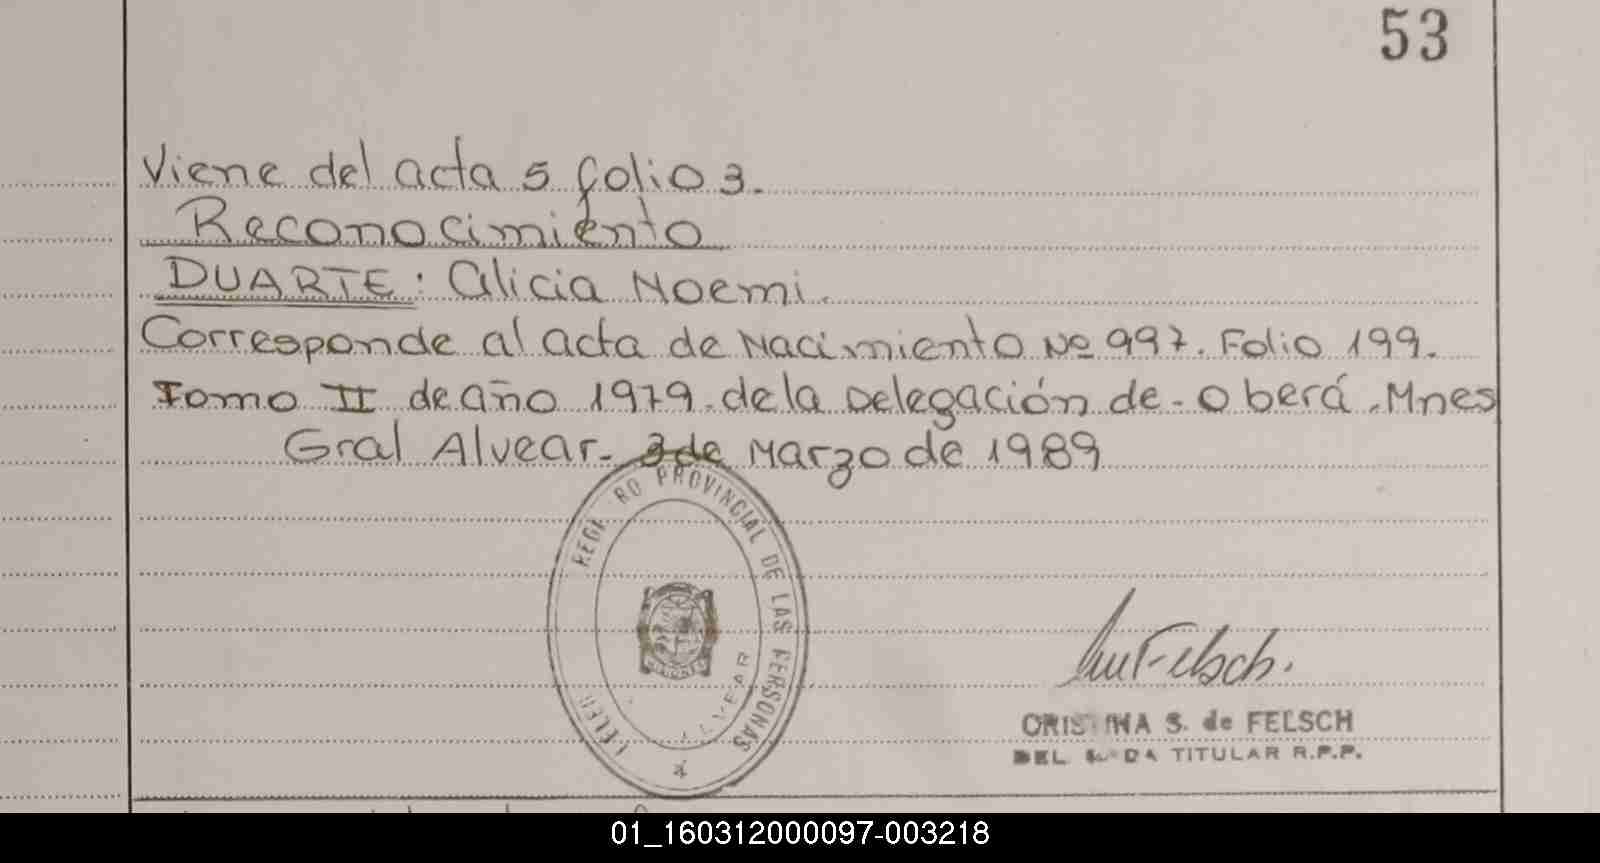 53
Viene del acta 5 folio 3.
Reconocimiento
DUARTE: Alicia Noemi.
Corresponde al acta de Nacimiento Nº 997. Folio 199.
Tomo II de año 1979. de la Delegación de - Oberá. Mnes
Gral Alvear. 3 de Marzo de 1989
REGI RO PROVINCIAL DE LAS PERSONAS
ALVEAR
Felsch.
CRISTINA S. de FELSCH
TITULAR R.P.P.
01_160312000097-003218